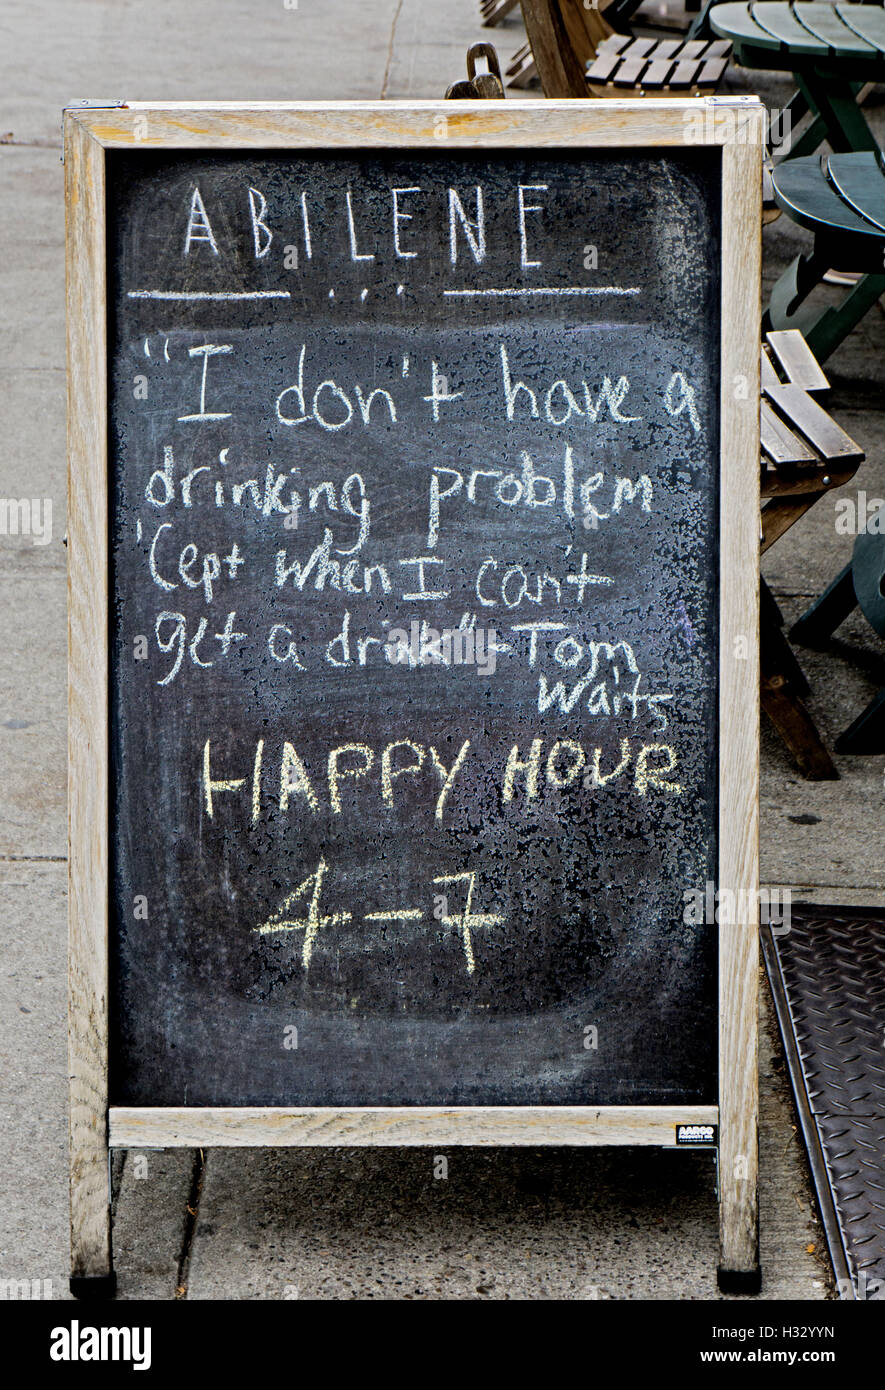 ABILENE
"I don't have a
drinking problem
'Cept when I can't
get a drink" - Tom
Waits
HAPPY HOUR
4-7
AARCO
PRODUCTS INC.
alamy
Image ID: H32YYN
www.alamy.com